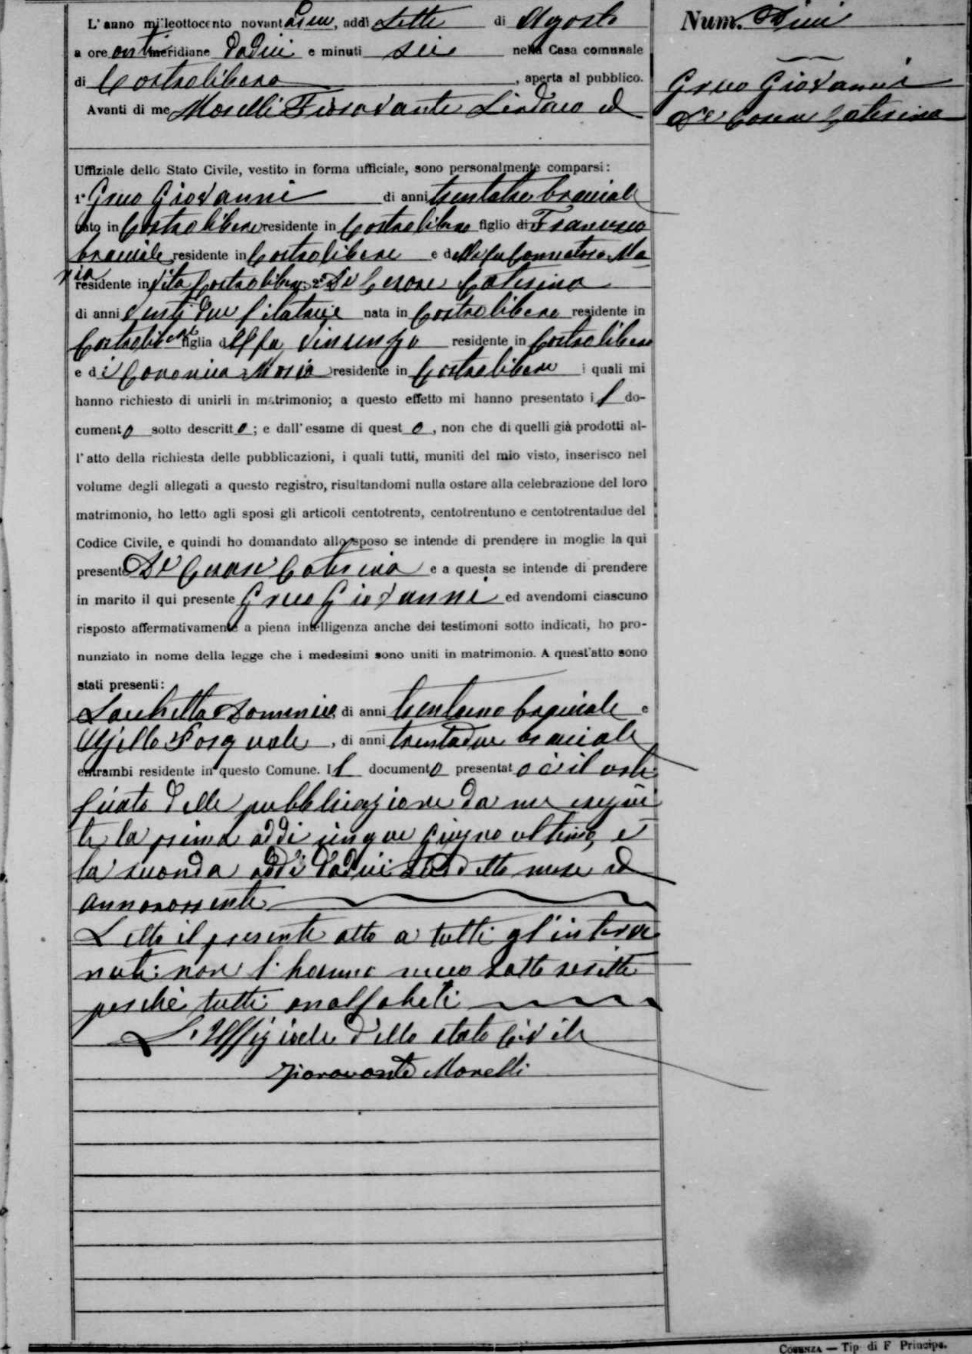 L'anno milleottocento novant , addì Sette di Agosto
a ore antimeridiane dodici e minuti sei nella Casa comunale
di Castrolibero , aperta al pubblico.
Avanti di me Morelli Fioravante Sindaco ed
Num. Dieci
Greco Giovanni
De Cesare Caterina
Uffiziale dello Stato Civile, vestito in forma ufficiale, sono personalmente comparsi:
1° Greco Giovanni di anni trentatre bracciale
nato in Castrolibero residente in Castrolibero figlio di Francesco
bracciale residente in Castrolibero e della fu Ma-
ria
residente in vita Castrolibero; 2° De Cesare Caterina
di anni venti due filatrice nata in Castrolibero residente in
Castrolibero figlia del fu Vincenzo residente in Castrolibero
e di Maria residente in Castrolibero i quali mi
hanno richiesto di unirli in matrimonio; a questo effetto mi hanno presentato il do-
cumento sotto descritto; e dall'esame di questo, non che di quelli già prodotti al-
l'atto della richiesta delle pubblicazioni, i quali tutti, muniti del mio visto, inserisco nel
volume degli allegati a questo registro, risultandomi nulla ostare alla celebrazione del loro
matrimonio, ho letto agli sposi gli articoli centotrenta, centotrentuno e centotrentadue del
Codice Civile, e quindi ho domandato allo sposo se intende di prendere in moglie la qui
presente De Cesare Caterina e a questa se intende di prendere
in marito il qui presente Greco Giovanni ed avendomi ciascuno
risposto affermativamente a piena intelligenza anche dei testimoni sotto indicati, ho pro-
nunziato in nome della legge che i medesimi sono uniti in matrimonio. A quest'atto sono
stati presenti:
Domenico di anni trentuno bracciale e
Pasquale, di anni trentadue bracciale
entrambi residente in questo Comune. Il documento presentato è il certi
ficato delle pubblicazione da me esegui
te la prima addì cinque Giugno ultimo, e
la seconda addì dodici detto mese ed
anno corrente
Letto il presente atto a tutti gl'interve
nuti: non l'hanno meco sottoscritto
perchè tutti analfabeti
L'Uffiziale dello stato Civile
Fioravante Morelli
COSENZA — Tip di F Principe.